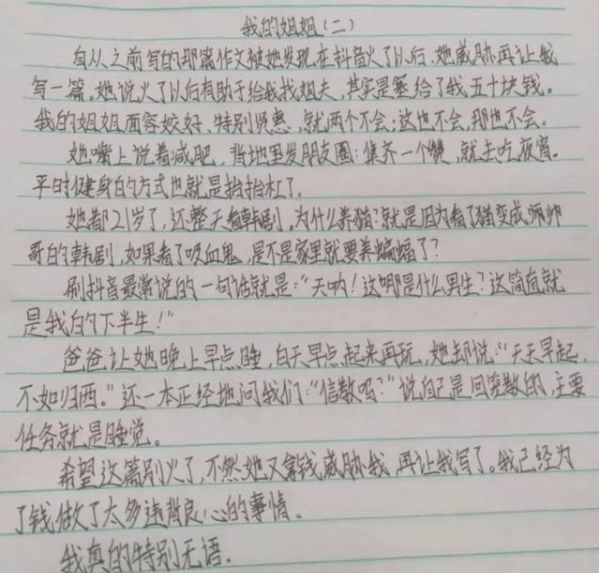 我的姐姐(二)
自从之前写的那篇作文被她发现在抖音火了以后,她威胁再让我
写一篇。她说火了以后有助于给我找姐夫,其实是塞给了我五十块钱。
我的姐姐面容姣好、特别贤惠,就两个不会:这也不会,那也不会。
她嘴上说着减肥,背地里发朋友圈:集齐一个赞,就去吃夜宵。
平时健身的方式也就是抬抬杠了。
她都21岁了,还整天看韩剧。为什么养猫?就是因为看了猫变成帅
哥的韩剧,如果看了吸血鬼,是不是家里就要养蝙蝠了?
刷抖音最常说的一句话就是:“天呐!这哪是什么男生?这简直就
是我的下半生!”
爸爸让她晚上早点睡,白天早点起来再玩,她却说:“天天早起,
不如归西。”还一本正经地问我们:“信教吗?”说自己是回笼教的,主要
任务就是睡觉。
希望这篇别火了,不然她又拿钱威胁我,再让我写了。我已经为
了钱做了太多违背良心的事情。
我真的特别无语。